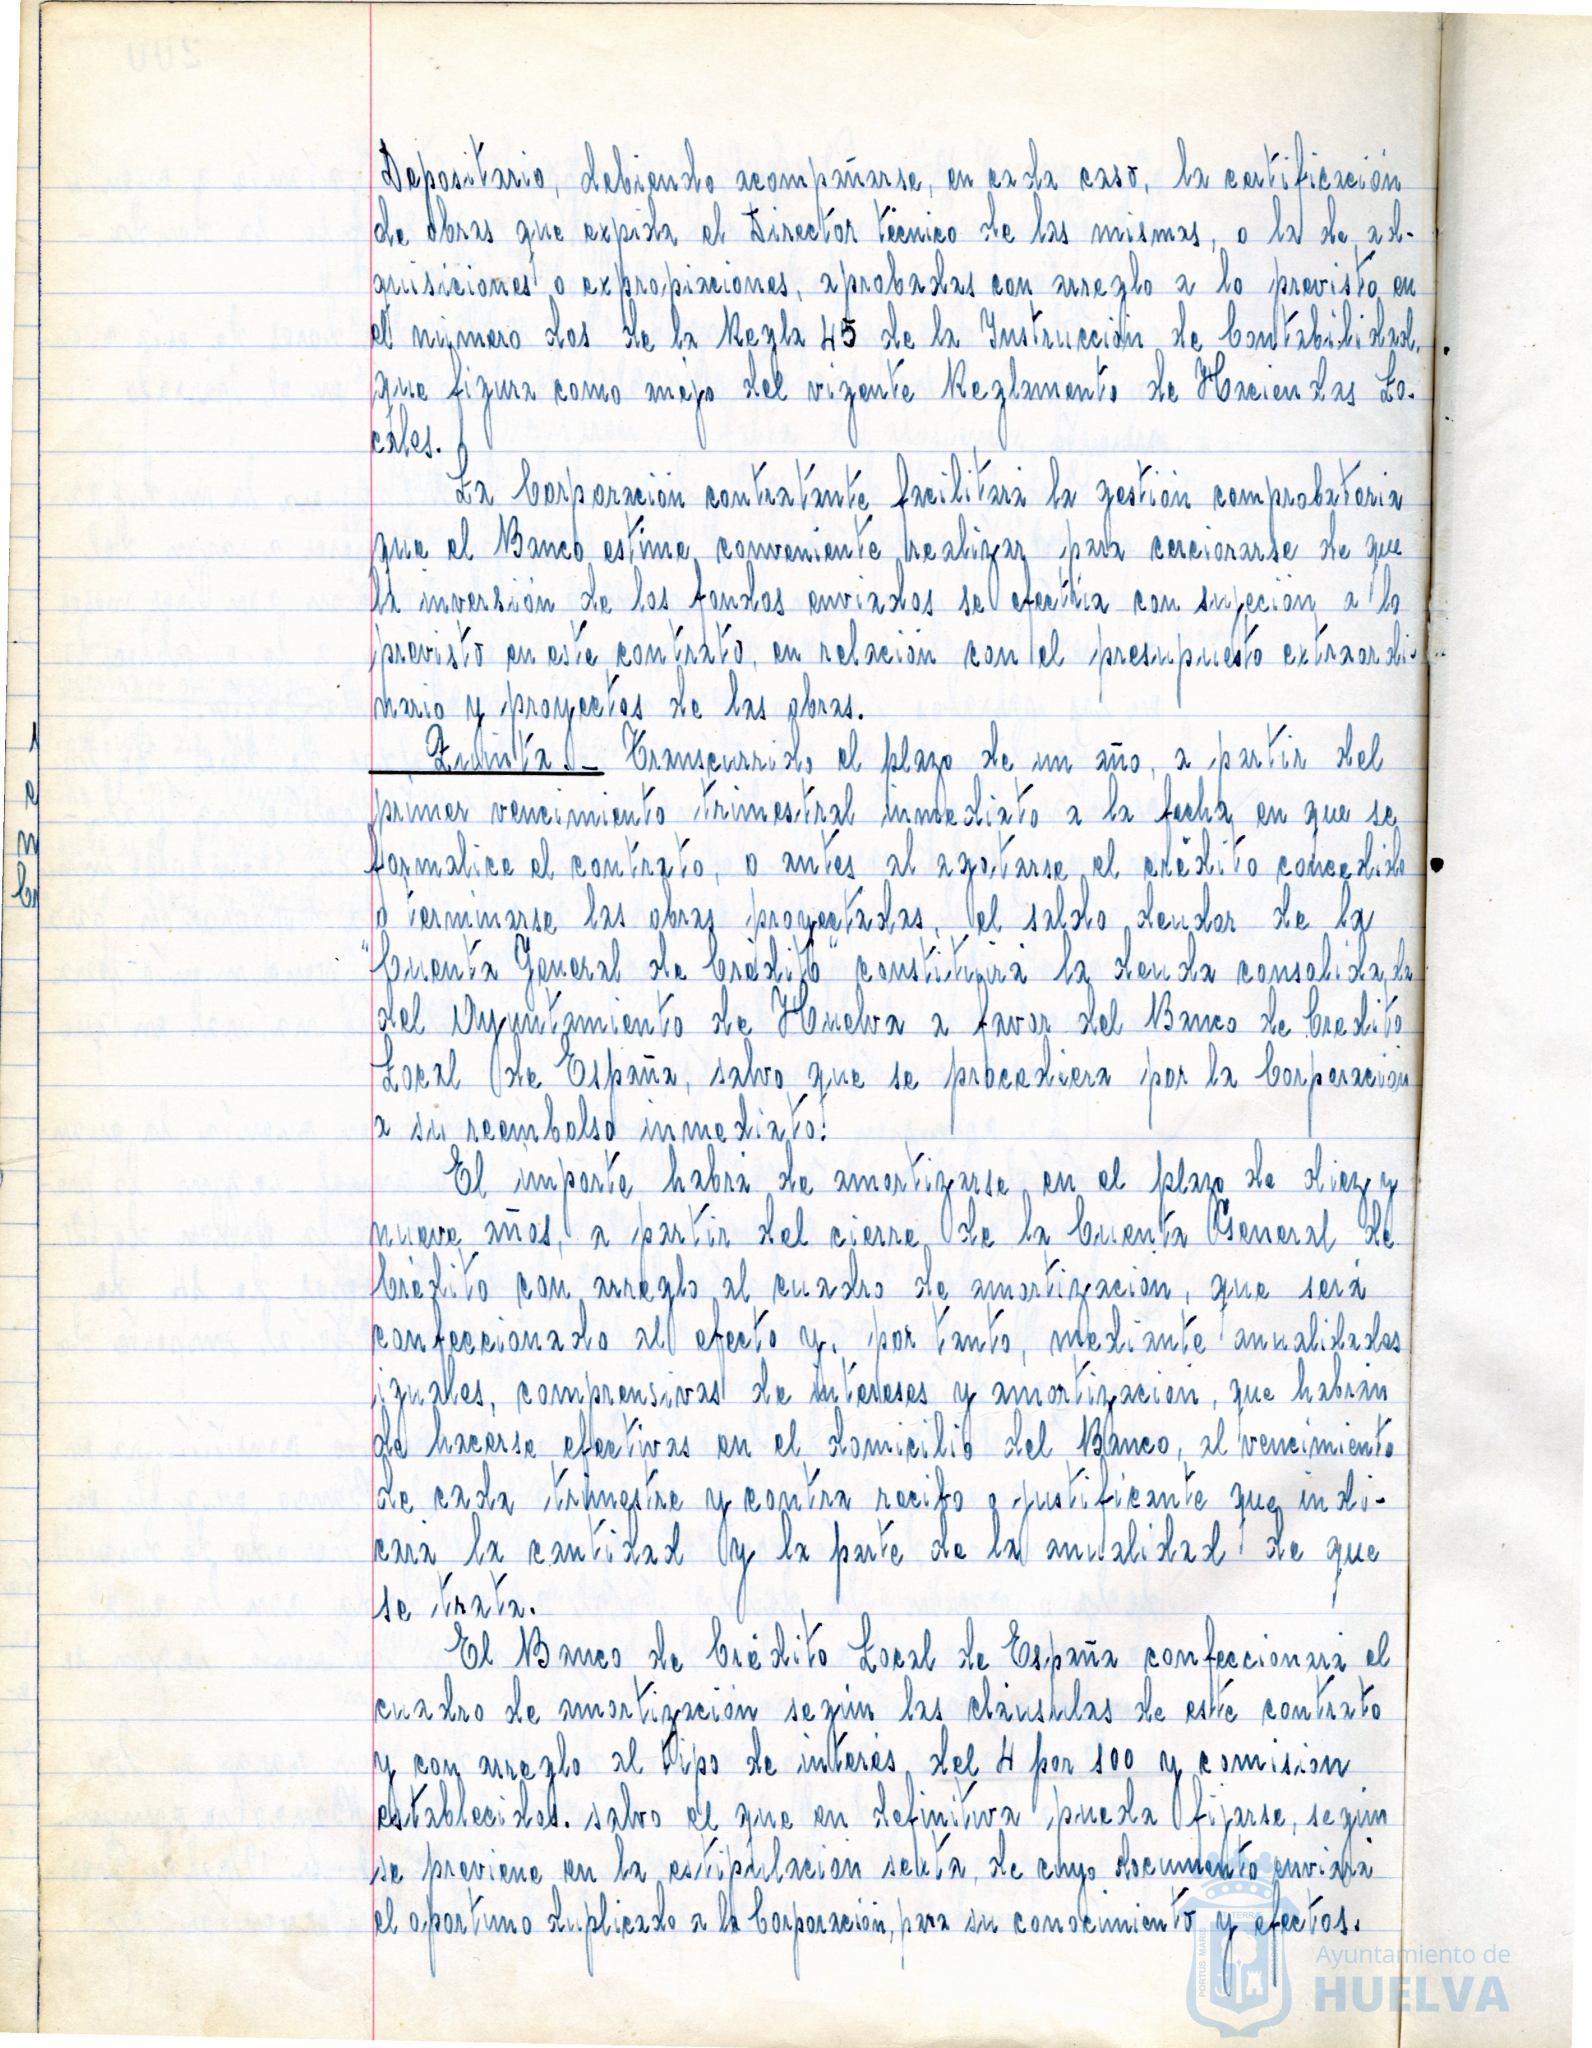 Depositario, debiendo acompañarse, en cada caso, la certificación
de obras que expida el Director técnico de las mismas, o la de ad-
quisiciones o expropiaciones, aprobadas con arreglo a lo previsto en
el número dos de la Regla 45 de la Instrucción de Contabilidad,
que figura como anejo del vigente Reglamento de Haciendas Lo-
cales.
La Corporación contratante facilitará la gestión comprobatoria
que el Banco estime conveniente realizar para cerciorarse de que
la inversión de los fondos enviados se efectúa con sujeción a lo
previsto en este contrato, en relación con el presupuesto extraordi-
nario y proyectos de las obras.
Quinta.- Transcurrido el plazo de un año, a partir del
primer vencimiento trimestral inmediato a la fecha en que se
formalice el contrato, o antes al agotarse el crédito concedido
o terminarse las obras proyectadas, el saldo deudor de la
"Cuenta General de Crédito" constituirá la deuda consolidada
del Ayuntamiento de Huelva a favor del Banco de Crédito
Local de España, salvo que se procediera por la Corporación
a su reembolso inmediato.
El importe habrá de amortizarse en el plazo de diez y
nueve años, a partir del cierre de la Cuenta General de
Crédito con arreglo al cuadro de amortización, que será
confeccionado al efecto y, por tanto, mediante anualidades
iguales, comprensivas de intereses y amortización, que habrán
de hacerse efectivas en el domicilio del Banco, al vencimiento
de cada trimestre y contra recibo o justificante que indi-
cará la cantidad y la parte de la anualidad de que
se trata.
El Banco de Crédito Local de España confeccionará el
cuadro de amortización según las cláusulas de este contrato
y con arreglo al tipo de interés del 4 por 100 y comisión
establecidos. salvo el que en definitiva pueda fijarse, según
se previene en la estipulación sexta, de cuyo documento enviará
el oportuno duplicado a la Corporación, para su conocimiento y efectos.
Ayuntamiento de
HUELVA